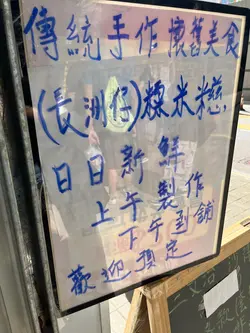 傳統手作懷舊美食
(長洲仔)糯米糍
日日新鮮
上午製作
下午到舖
歡迎預定